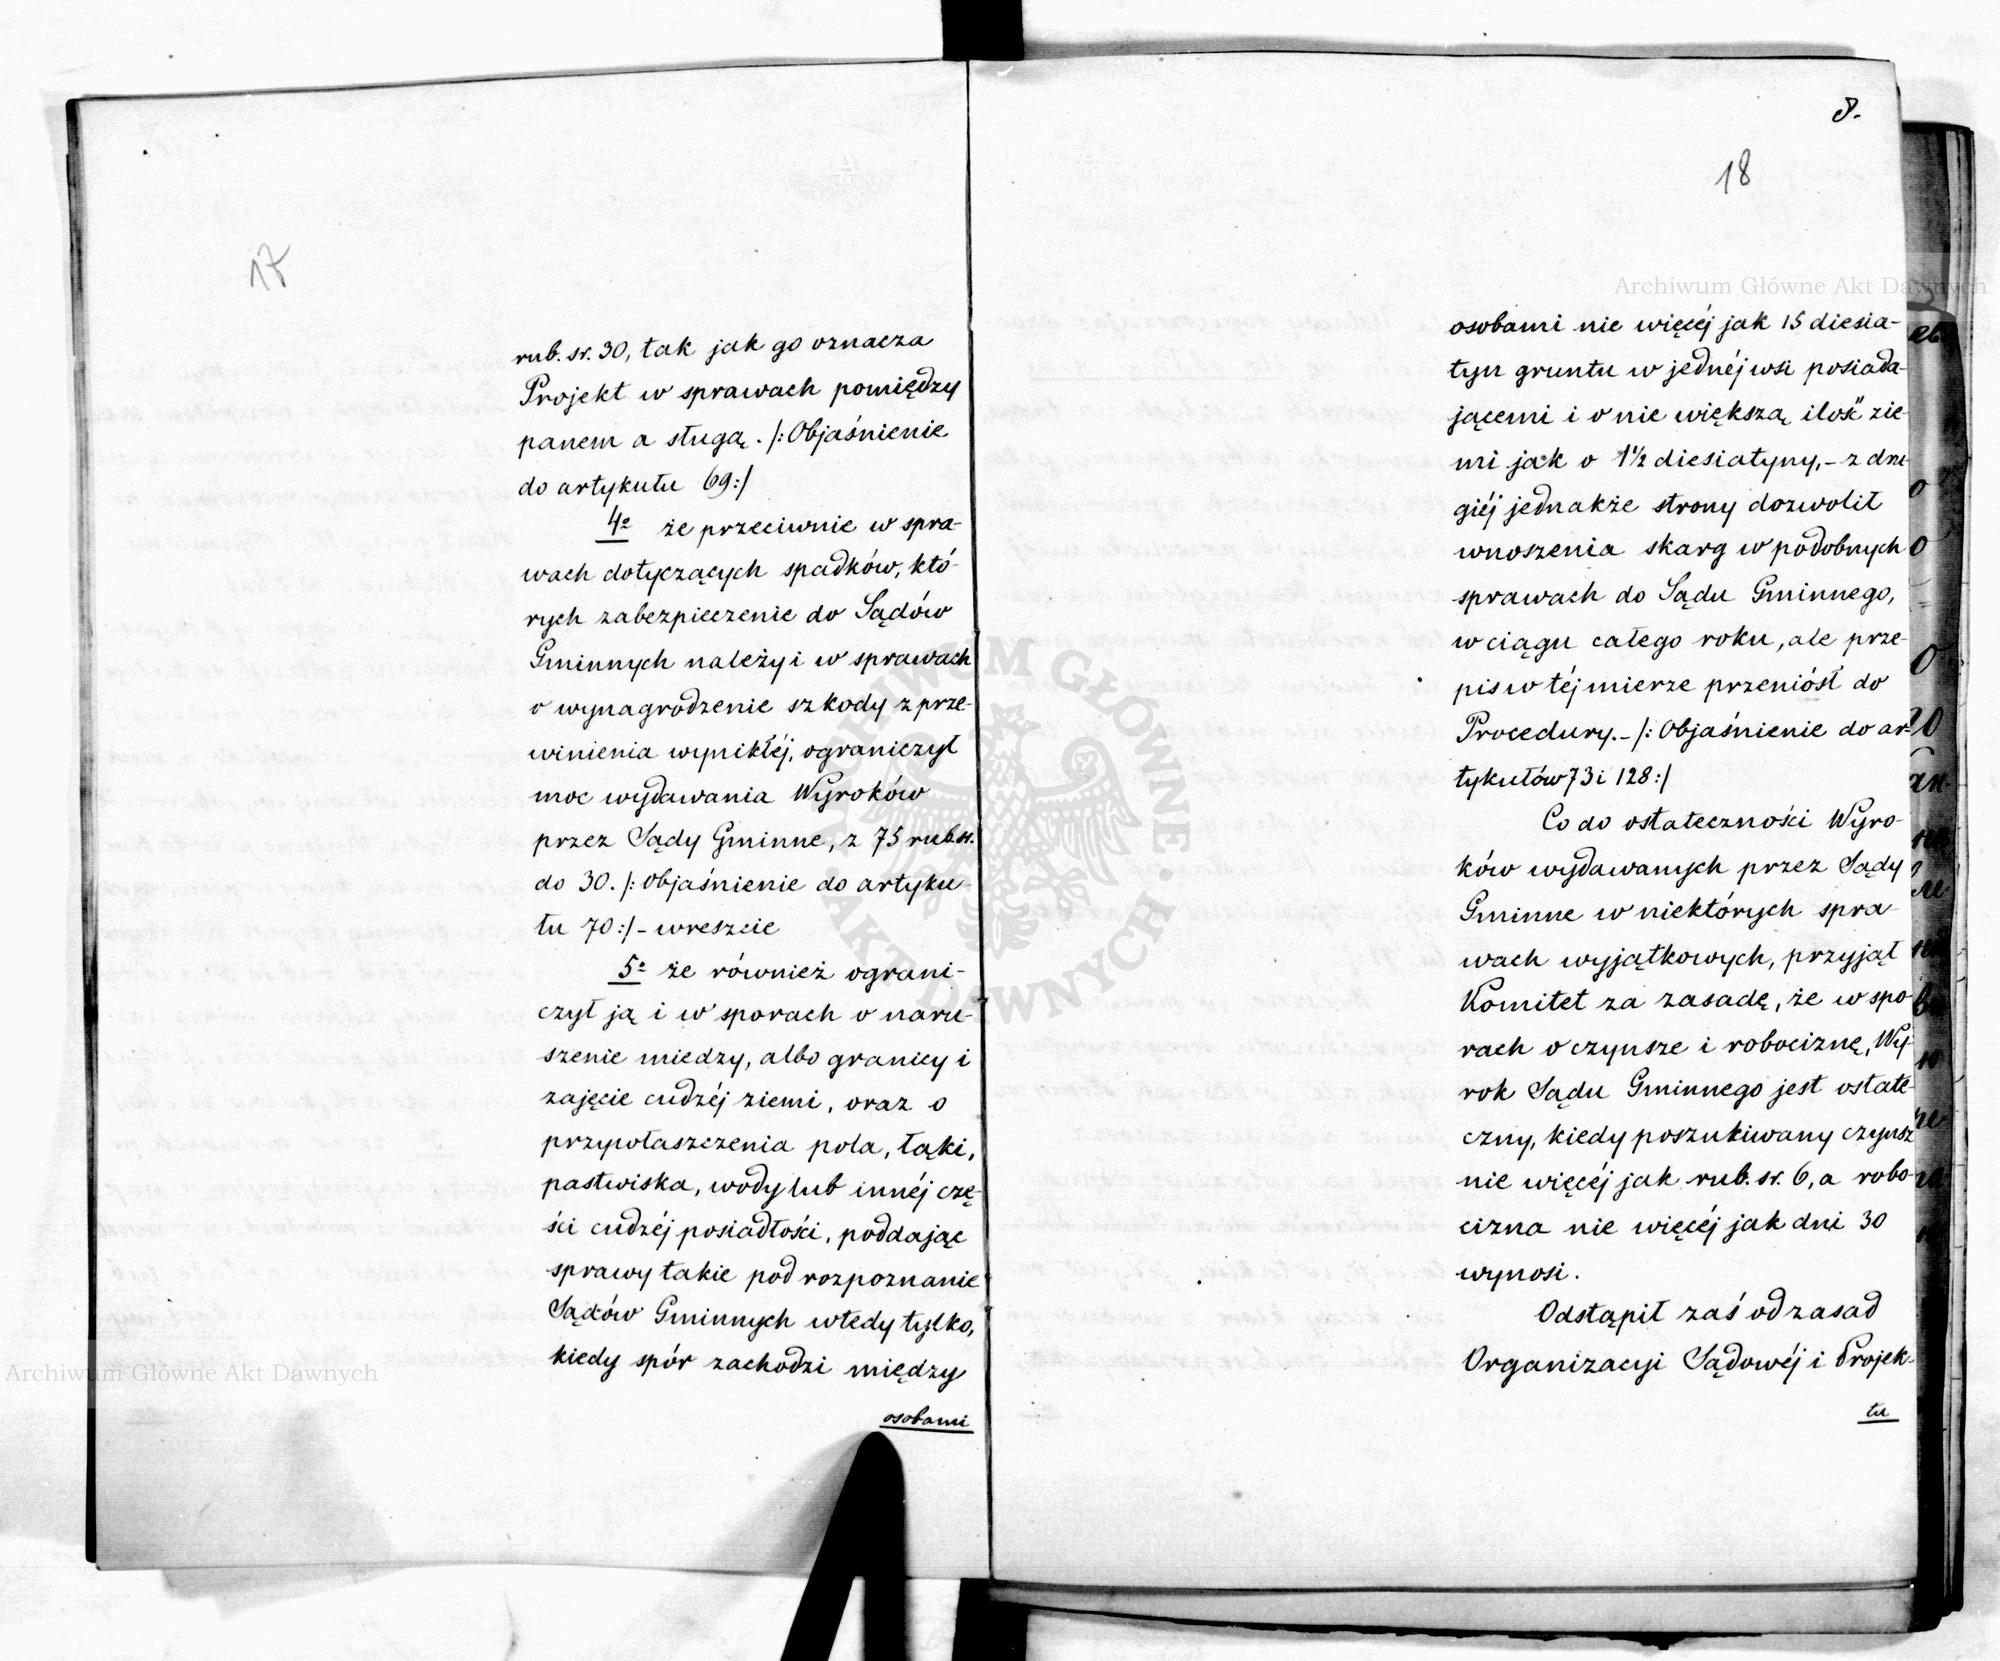 17
rub. sr. 30, tak jak go oznacza
Projekt w sprawach pomiędzy
panem a sługą. /: Objaśnienie
do artykułu 69:/
4o że przeciwnie w spra-
wach dotyczących spadków, któ-
rych zabezpieczenie do Sądów
Gminnych należy i w sprawach
o wynagrodzenie szkody z prze-
winienia wynikłéj, ograniczył
moc wydawania Wyroków
przez Sądy Gminne, z 75 rub. sr.
do 30. /: Objaśnienie do artyku-
łu 70:/ - wreszcie
5o że również ograni-
czył ją i w sporach o naru-
szenie miedzy, albo granicy i
zajęcie cudzéj ziemi, oraz o
przywłaszczenia pola, łąki,
pastwiska, wody lub innéj czę-
ści cudzéj posiadłości, poddając
sprawy takie pod rozpoznanie
Sądów Gminnych wtedy tylko,
kiedy spór zachodzi między
osobami
8.
18
osobami nie więcéj jak 15 diesia-
tyn gruntu w jednéj wsi posiada-
jącemi i o nie większą ilość zie-
mi jak o 1½ diesiatyny, - z dru-
giéj jednakże strony dozwolił
wnoszenia skarg w podobnych
sprawach do Sądu Gminnego,
w ciągu całego roku, ale prze-
pis w téj mierze przeniósł do
Procedury. - /: Objaśnienie do ar-
tykułów 73 i 128:/
Co do ostateczności Wyro-
ków wydawanych przez Sądy
Gminne w niektórych spra-
wach wyjątkowych, przyjął
Komitet za zasadę, że w spo-
rach o czynsze i robociznę, Wy-
rok Sądu Gminnego jest ostate-
czny, kiedy poszukiwany czynsz
nie więcéj jak rub. sr. 6, a robo-
cizna nie więcéj jak dni 30
wynosi.
Odstąpił zaś od zasad
Organizacyi Sądowéj i Projek-
tu
Archiwum Główne Akt Dawnych
Archiwum Główne Akt Dawnych
ARCHIWUM GŁÓWNE AKT DAWNYCH